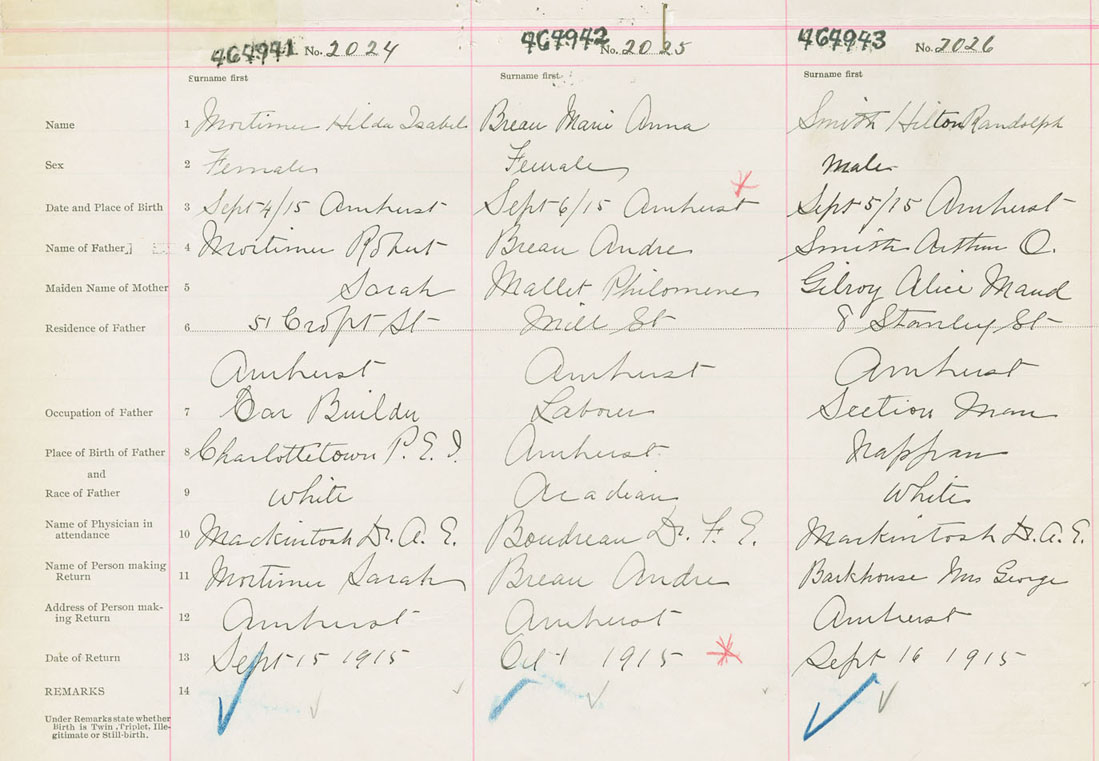 464941 No. 2024 464942 No. 2025 464943 No. 2026
Surname first Surname first Surname first
Name 1 Mortimer Hilda Isabel Breau Marie Anna Smith Hilton Randolph
Sex 2 Female Female Male
Date and Place of Birth 3 Sept 4/15 Amherst Sept 6/15 Amherst Sept 5/15 Amherst
Name of Father 4 Mortimer Robert Breau Andre Smith Arthur O.
Maiden Name of Mother 5 Sarah Mallet Philomene Gilroy Alice Maud
Residence of Father 6 51 Croft St Mill St 8 Stanley St
Amherst Amherst Amherst
Occupation of Father 7 Car Builder Labourer Section Man
Place of Birth of Father 8 Charlottetown P.E.I. Amherst Nappan
and
Race of Father 9 White Acadian White
Name of Physician in
attendance 10 Mackintosh Dr. A. E. Boudreau Dr. F. E. Mackintosh Dr. A. E.
Name of Person making
Return 11 Mortimer Sarah Breau Andre Barkhouse Mrs George
Address of Person mak-
ing Return 12 Amherst Amherst Amherst
Date of Return 13 Sept 15 1915 Oct 1 1915 Sept 16 1915
REMARKS 14
Under Remarks state whether
Birth is Twin, Triplet, Ille-
gitimate or Still-birth.